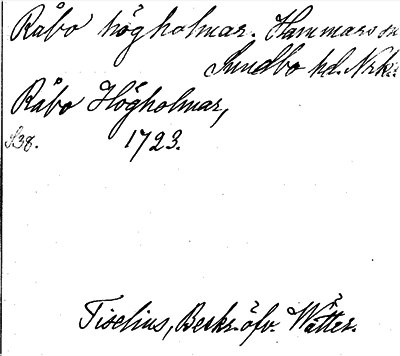 Råbo högholmar. Hammars sn
Sundbo hd. Nrke.
Råbo Högholmar,
S38. 1723.
Tiselius, Beskr. öfv. Wätter.